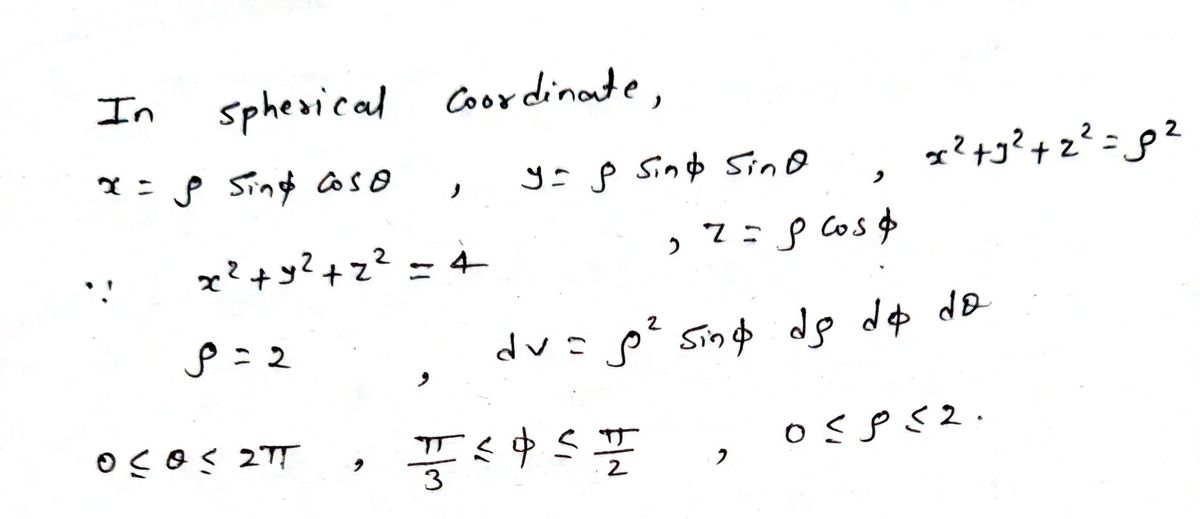 In spherical Coordinate,
x = ρ Sinϕ Cosθ , y = ρ Sinϕ Sinθ , x²+y²+z² = ρ²
, z = ρ Cosϕ
∵ x²+y²+z² = 4
ρ = 2 , dv = ρ² Sinϕ dρ dϕ dθ
0 ≤ θ ≤ 2π , π/3 ≤ ϕ ≤ π/2 , 0 ≤ ρ ≤ 2.